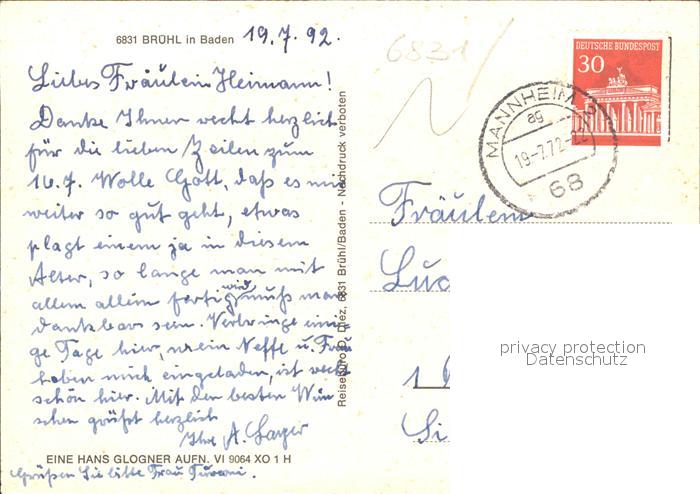 6831 BRÜHL in Baden 19.7.92.
Liebes Fräulein Heimann!
Danke Ihnen recht herzlich
für die lieben Zeilen zum
16.7. Wolle Gott, daß es mir
weiter so gut geht, etwas
plagt einem ja in diesem
Alter, so lange man mit
allem allein fertig wird muß man
dankbar sein. Verbringe eini-
ge Tage hier, mein Neffe u. Frau
haben mich eingeladen, ist recht
schön hier. Mit den besten Wün
schen grüßt herzlich
Ihre A.
EINE HANS GLOGNER AUFN. VI 9064 XO 1 H
Grüßen Sie bitte Frau
Reisebüro D. Diez, 6831 Brühl/Baden - Nachdruck verboten
6831
DEUTSCHE BUNDESPOST
30
MANNHEIM
ag
19.-7.72
68
Fräulein
1
privacy protection
Datenschutz